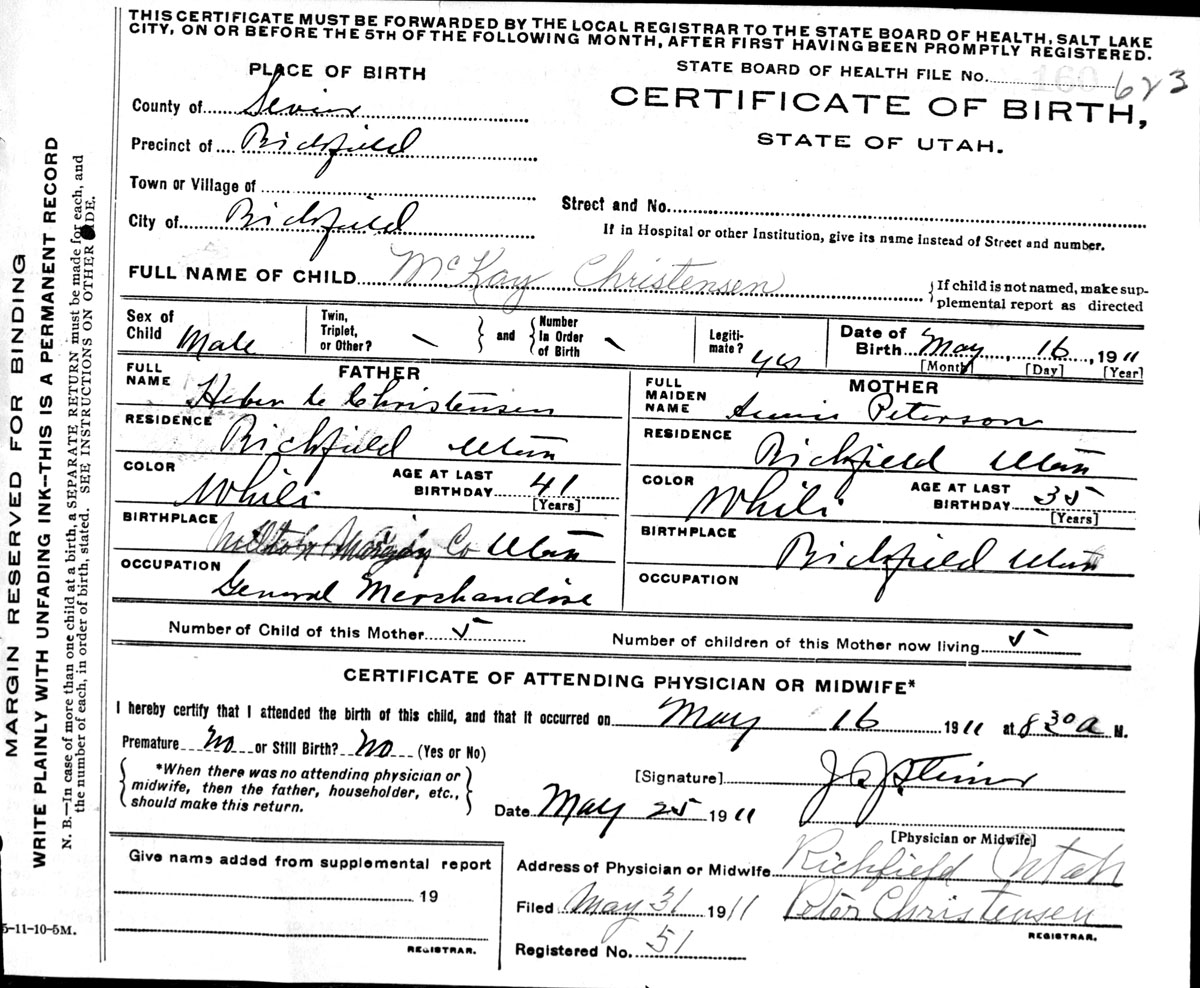 THIS CERTIFICATE MUST BE FORWARDED BY THE LOCAL REGISTRAR TO THE STATE BOARD OF HEALTH, SALT LAKE
CITY, ON OR BEFORE THE 5TH OF THE FOLLOWING MONTH, AFTER FIRST HAVING BEEN PROMPTLY REGISTERED.
PLACE OF BIRTH
STATE BOARD OF HEALTH FILE No. 160 623
County of Sevier
CERTIFICATE OF BIRTH,
Precinct of Richfield
STATE OF UTAH.
Town or Village of
Street and No.
City of Richfield
If in Hospital or other Institution, give its name instead of Street and number.
FULL NAME OF CHILD McKay Christensen
If child is not named, make sup-
plemental report as directed
Sex of Child Male
Twin, Triplet, or Other? \
and
Number In Order of Birth \
Legiti-mate? yes
Date of Birth May 16, 1911
[Month] [Day] [Year]
FATHER
FULL NAME Heber C Christensen
RESIDENCE Richfield Utah
COLOR White
AGE AT LAST BIRTHDAY 41
[Years]
BIRTHPLACE Milton Morgan Co Utah
OCCUPATION General Merchandise
MOTHER
FULL MAIDEN NAME Annie Peterson
RESIDENCE Richfield Utah
COLOR White
AGE AT LAST BIRTHDAY 35
[Years]
BIRTHPLACE Richfield Utah
OCCUPATION
Number of Child of this Mother 5
Number of children of this Mother now living 5
CERTIFICATE OF ATTENDING PHYSICIAN OR MIDWIFE*
I hereby certify that I attended the birth of this child, and that it occurred on May 16 1911 at 8 30 a M.
Premature No or Still Birth? No (Yes or No)
*When there was no attending physician or
midwife, then the father, householder, etc.,
should make this return.
[Signature]
Date May 25 1911
[Physician or Midwife]
Give name added from supplemental report
19
REGISTRAR.
Address of Physician or Midwife Richfield Utah
Filed May 31 1911 Peter Christensen
REGISTRAR.
Registered No. 51
5-11-10-5M.
MARGIN RESERVED FOR BINDING
WRITE PLAINLY WITH UNFADING INK—THIS IS A PERMANENT RECORD
N. B.—In case of more than one child at a birth, a SEPARATE RETURN must be made for each, and
the number of each, in order of birth, stated. SEE INSTRUCTIONS ON OTHER SIDE.